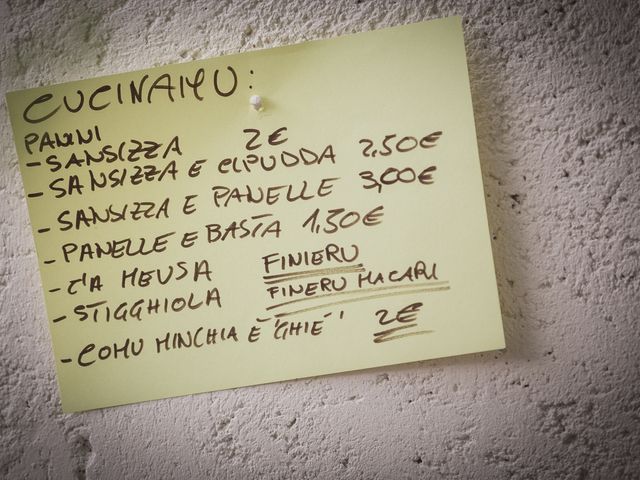 CUCINAMU:
PANINI
- SANSIZZA 2€
- SANSIZZA E CIPUDDA 2,50€
- SANSIZZA E PANELLE 3,00€
- PANELLE E BASTA 1,50€
- C'A MEUSA FINIERU
- STIGGHIOLA FINERU MACARI
- COMU MINCHIA E "GHIE" 2€